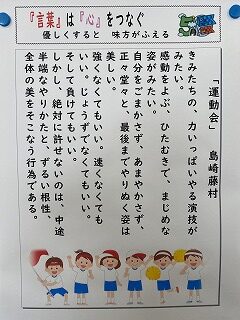 『言葉』は『心』をつなぐ
優しくすると　味方がふえる
「運動会」　島崎藤村
きみたちの、力いっぱいやる演技が
みたい。
感動をよぶ、ひたむきで、まじめな
姿がみたい。
自分をごまかさず、あまやかさず、
正々堂々と、最後までやりぬく姿は
美しい。
強くなくてもいい。速くなくても
いい。じょうずでなくてもいい。
そして負けてもいい。
しかし、絶対に許せないのは、中途
半端なやりかたと、ずるい根性、
全体の美をそこなう行為である。